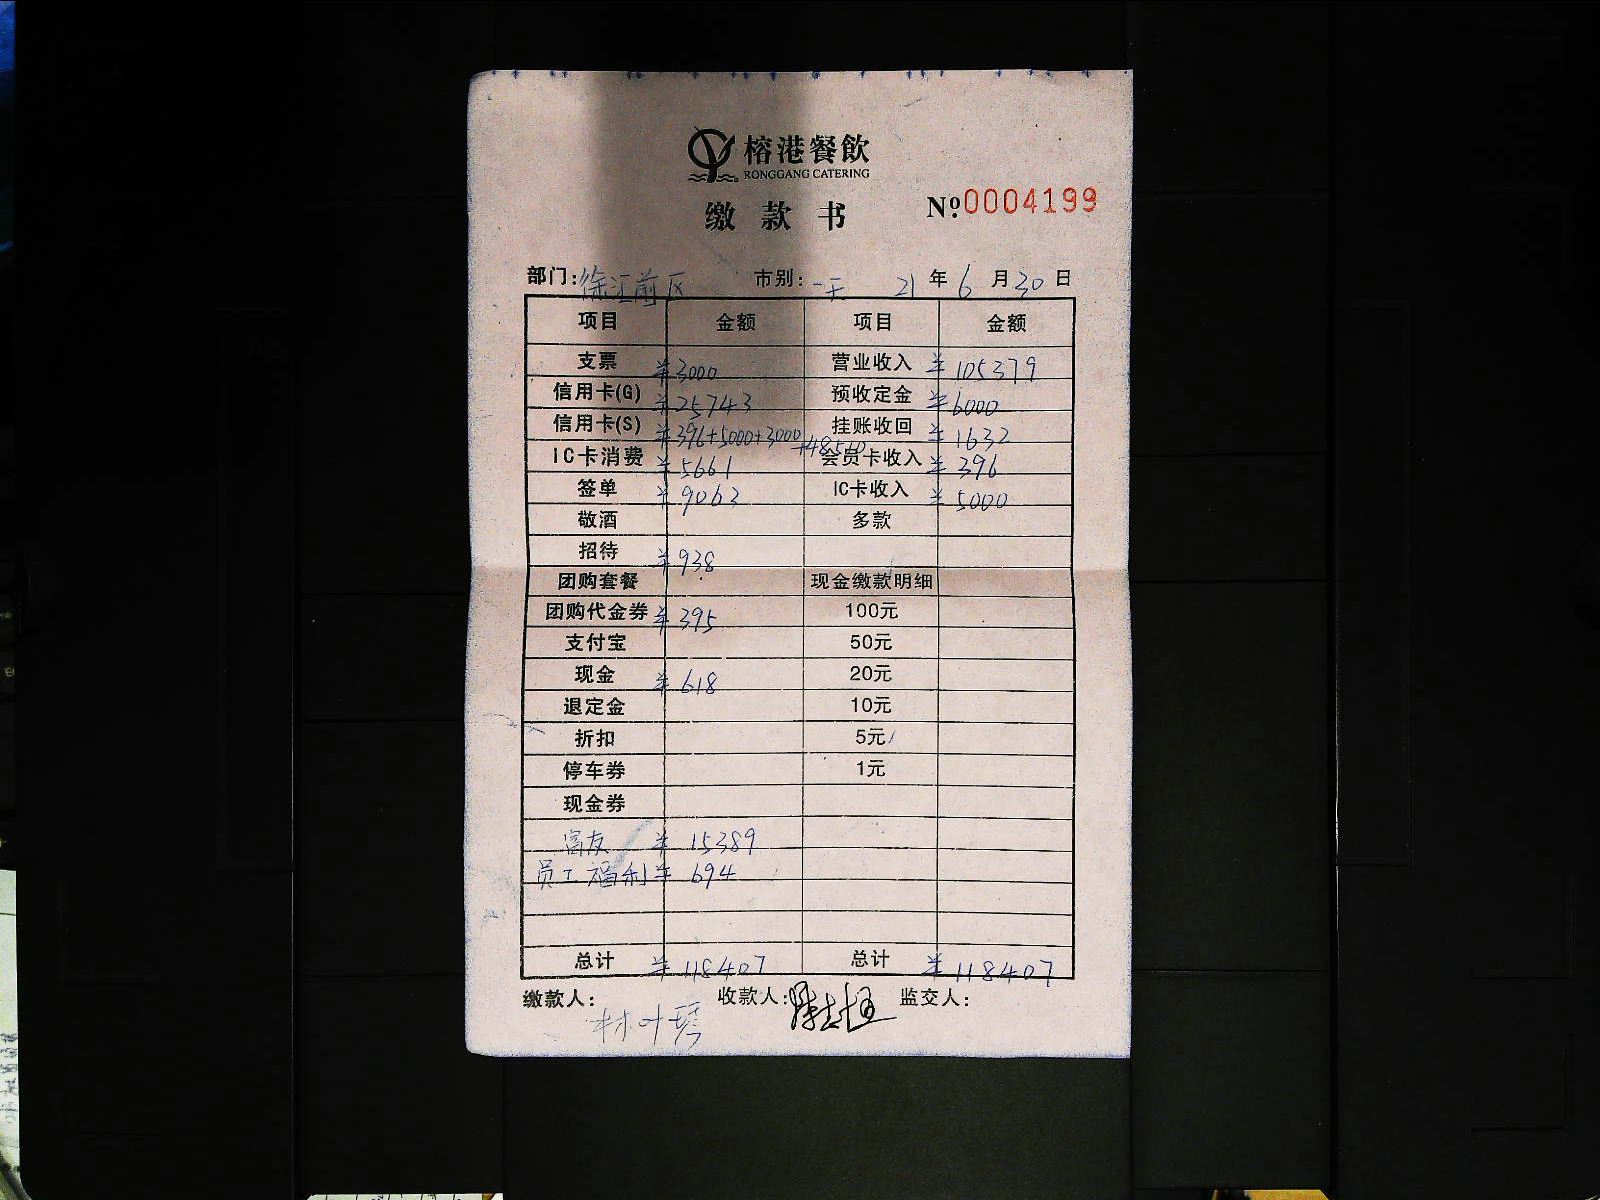 榕港餐飲
RONGGANG CATERING
缴款书
№:0004199
部门:徐汇前区 市别:一天 21年6月30日
项目 金额 项目 金额
支票 ¥3000 营业收入 ¥105379
信用卡(G) ¥25743 预收定金 ¥6000
信用卡(S) ¥396+5000+3000+48510 挂账收回 ¥1632
IC卡消费 ¥5661 会员卡收入 ¥396
签单 ¥9063 IC卡收入 ¥5000
敬酒 多款
招待 ¥938
团购套餐 现金缴款明细
团购代金券 ¥395 100元
支付宝 50元
现金 ¥618 20元
退定金 10元
折扣 5元
停车券 1元
现金券
富友 ¥15389
员工福利 ¥694
总计 ¥118407 总计 ¥118407
缴款人:林叶琴 收款人: 监交人: